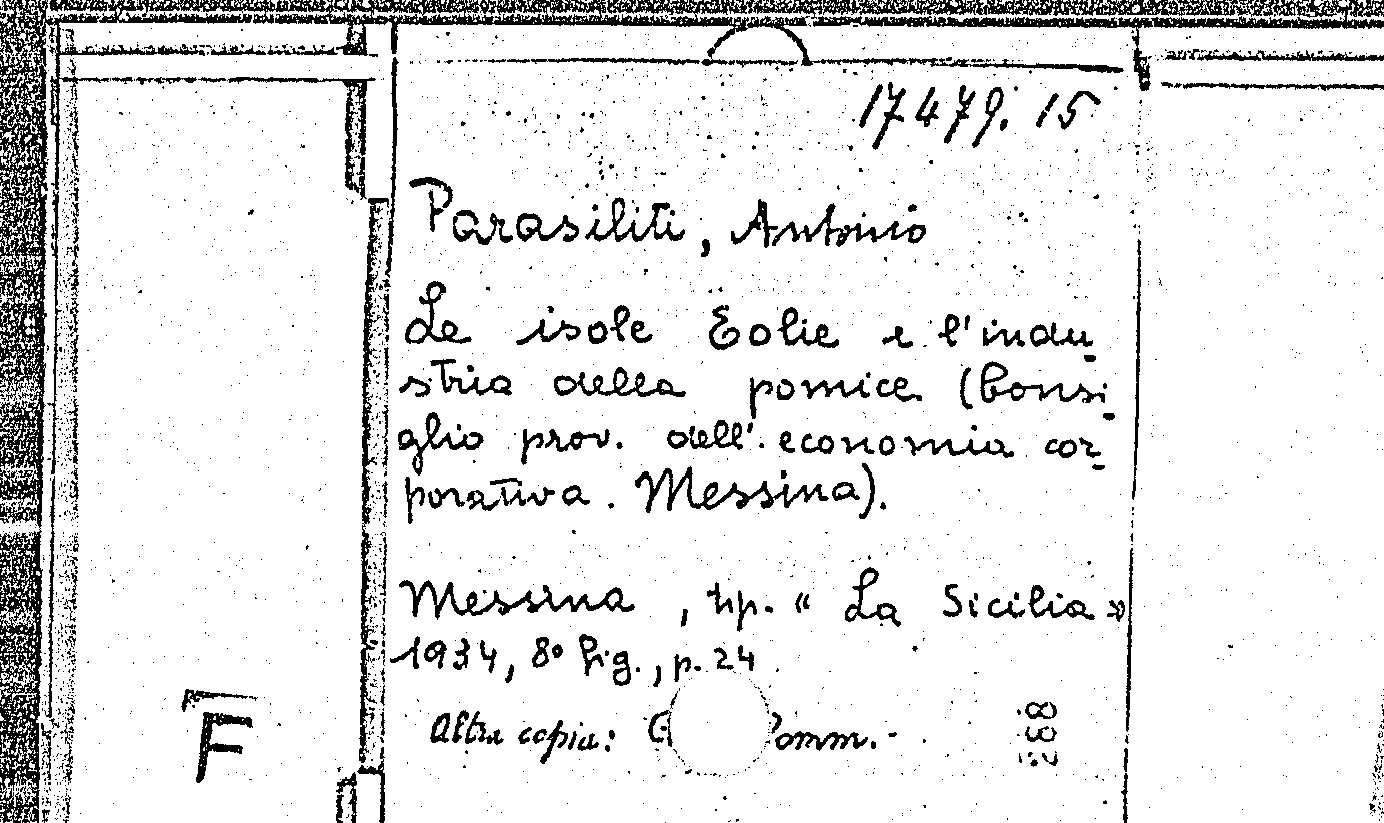 17479. 15
Parasiliti, Antonio
Le isole Eolie e l'indu-
stria della pomice (Consi-
glio prov. dell'economia cor-
porativa. Messina).
Messina, tip. « La Sicilia »
1934, 8º fig., p. 24
Altra copia:
F